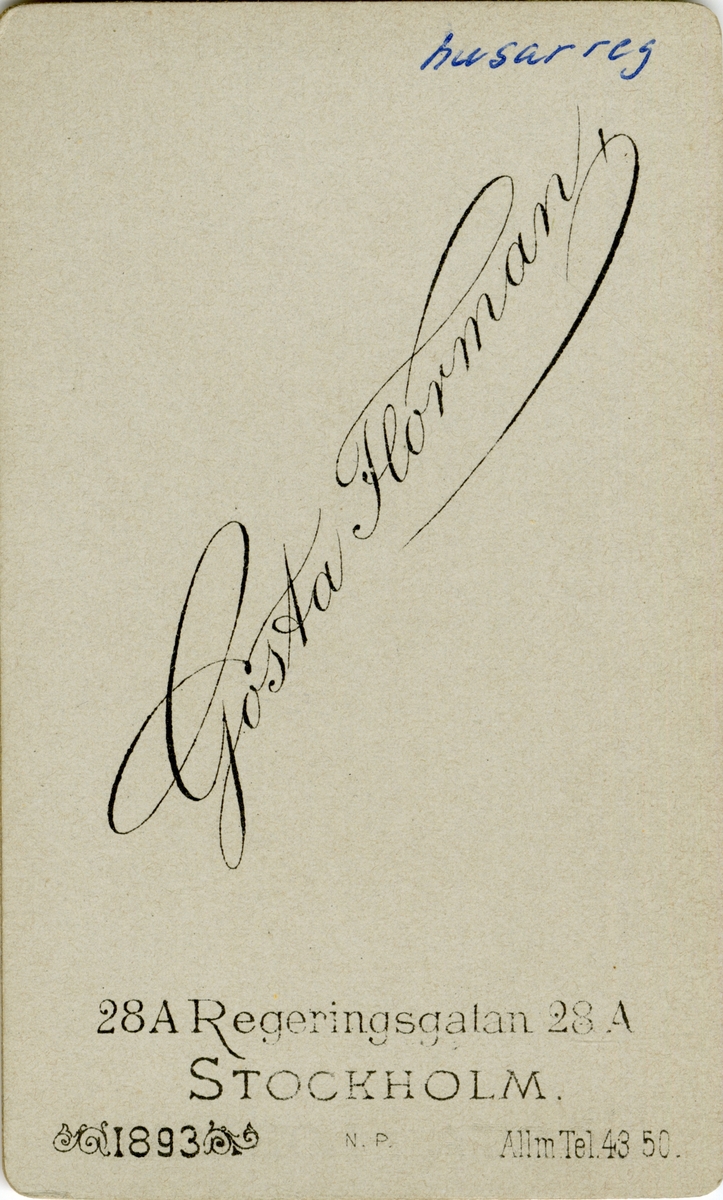 husarreg
Gösta Florman
28A Regeringsgatan 28A
STOCKHOLM.
1893
N. P.
Allm.Tel.43 50.